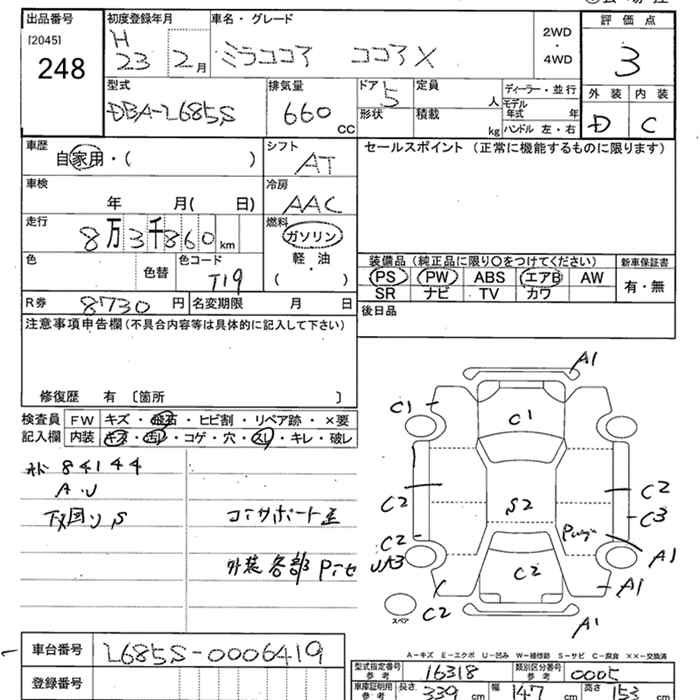 出品番号 初度登録年月 車名・グレード 評価点
[2045] H 2WD
248 23 2月 ミラココア ココアX ・ 3
4WD
型式 排気量 ドア 定員 ディーラー・並行 外装 内装
DBA-L685S 660 CC 5 人 モデル年式 年 D C
形状 積載 kg ハンドル 左・右
車歴 シフト セールスポイント (正常に機能するものに限ります)
自家用・( ) AT
車検 冷房
年 月( 日) AAC
走行 燃料
8万3千860km ガソリン
色 色替 色コード 軽・油 装備品(純正品に限り○をつけてください) 新車保証書
T19 ( ) PS PW ABS エアB AW 有・無
SR ナビ TV カワ
R券 8730円 名変期限 月 日 後日品
注意事項申告欄(不具合内容等は具体的に記入して下さい)
修復歴 有 〔箇所 〕
検査員 FW キズ・飛石・ヒビ割・リペア跡・×要
記入欄 内装 キズ・汚レ・コゲ・穴・スレ・キレ・破レ
84144
A・U
下回りS コアサポート歪
外装各部Pニセ
A1
C1 C1
C2 S2 C2
C3
C2 A1
UA3 C2 A1
スペア C2 A1
A-キズ E-エクボ U-凹み W-補修跡 S-サビ C-腐食 ××-交換済
車台番号 L685S-0006419
型式指定番号 参考 16318 類別区分番号 参考 0005
登録番号
車庫証明用 参考 長さ 339 cm 幅 147 cm 高さ 153 cm